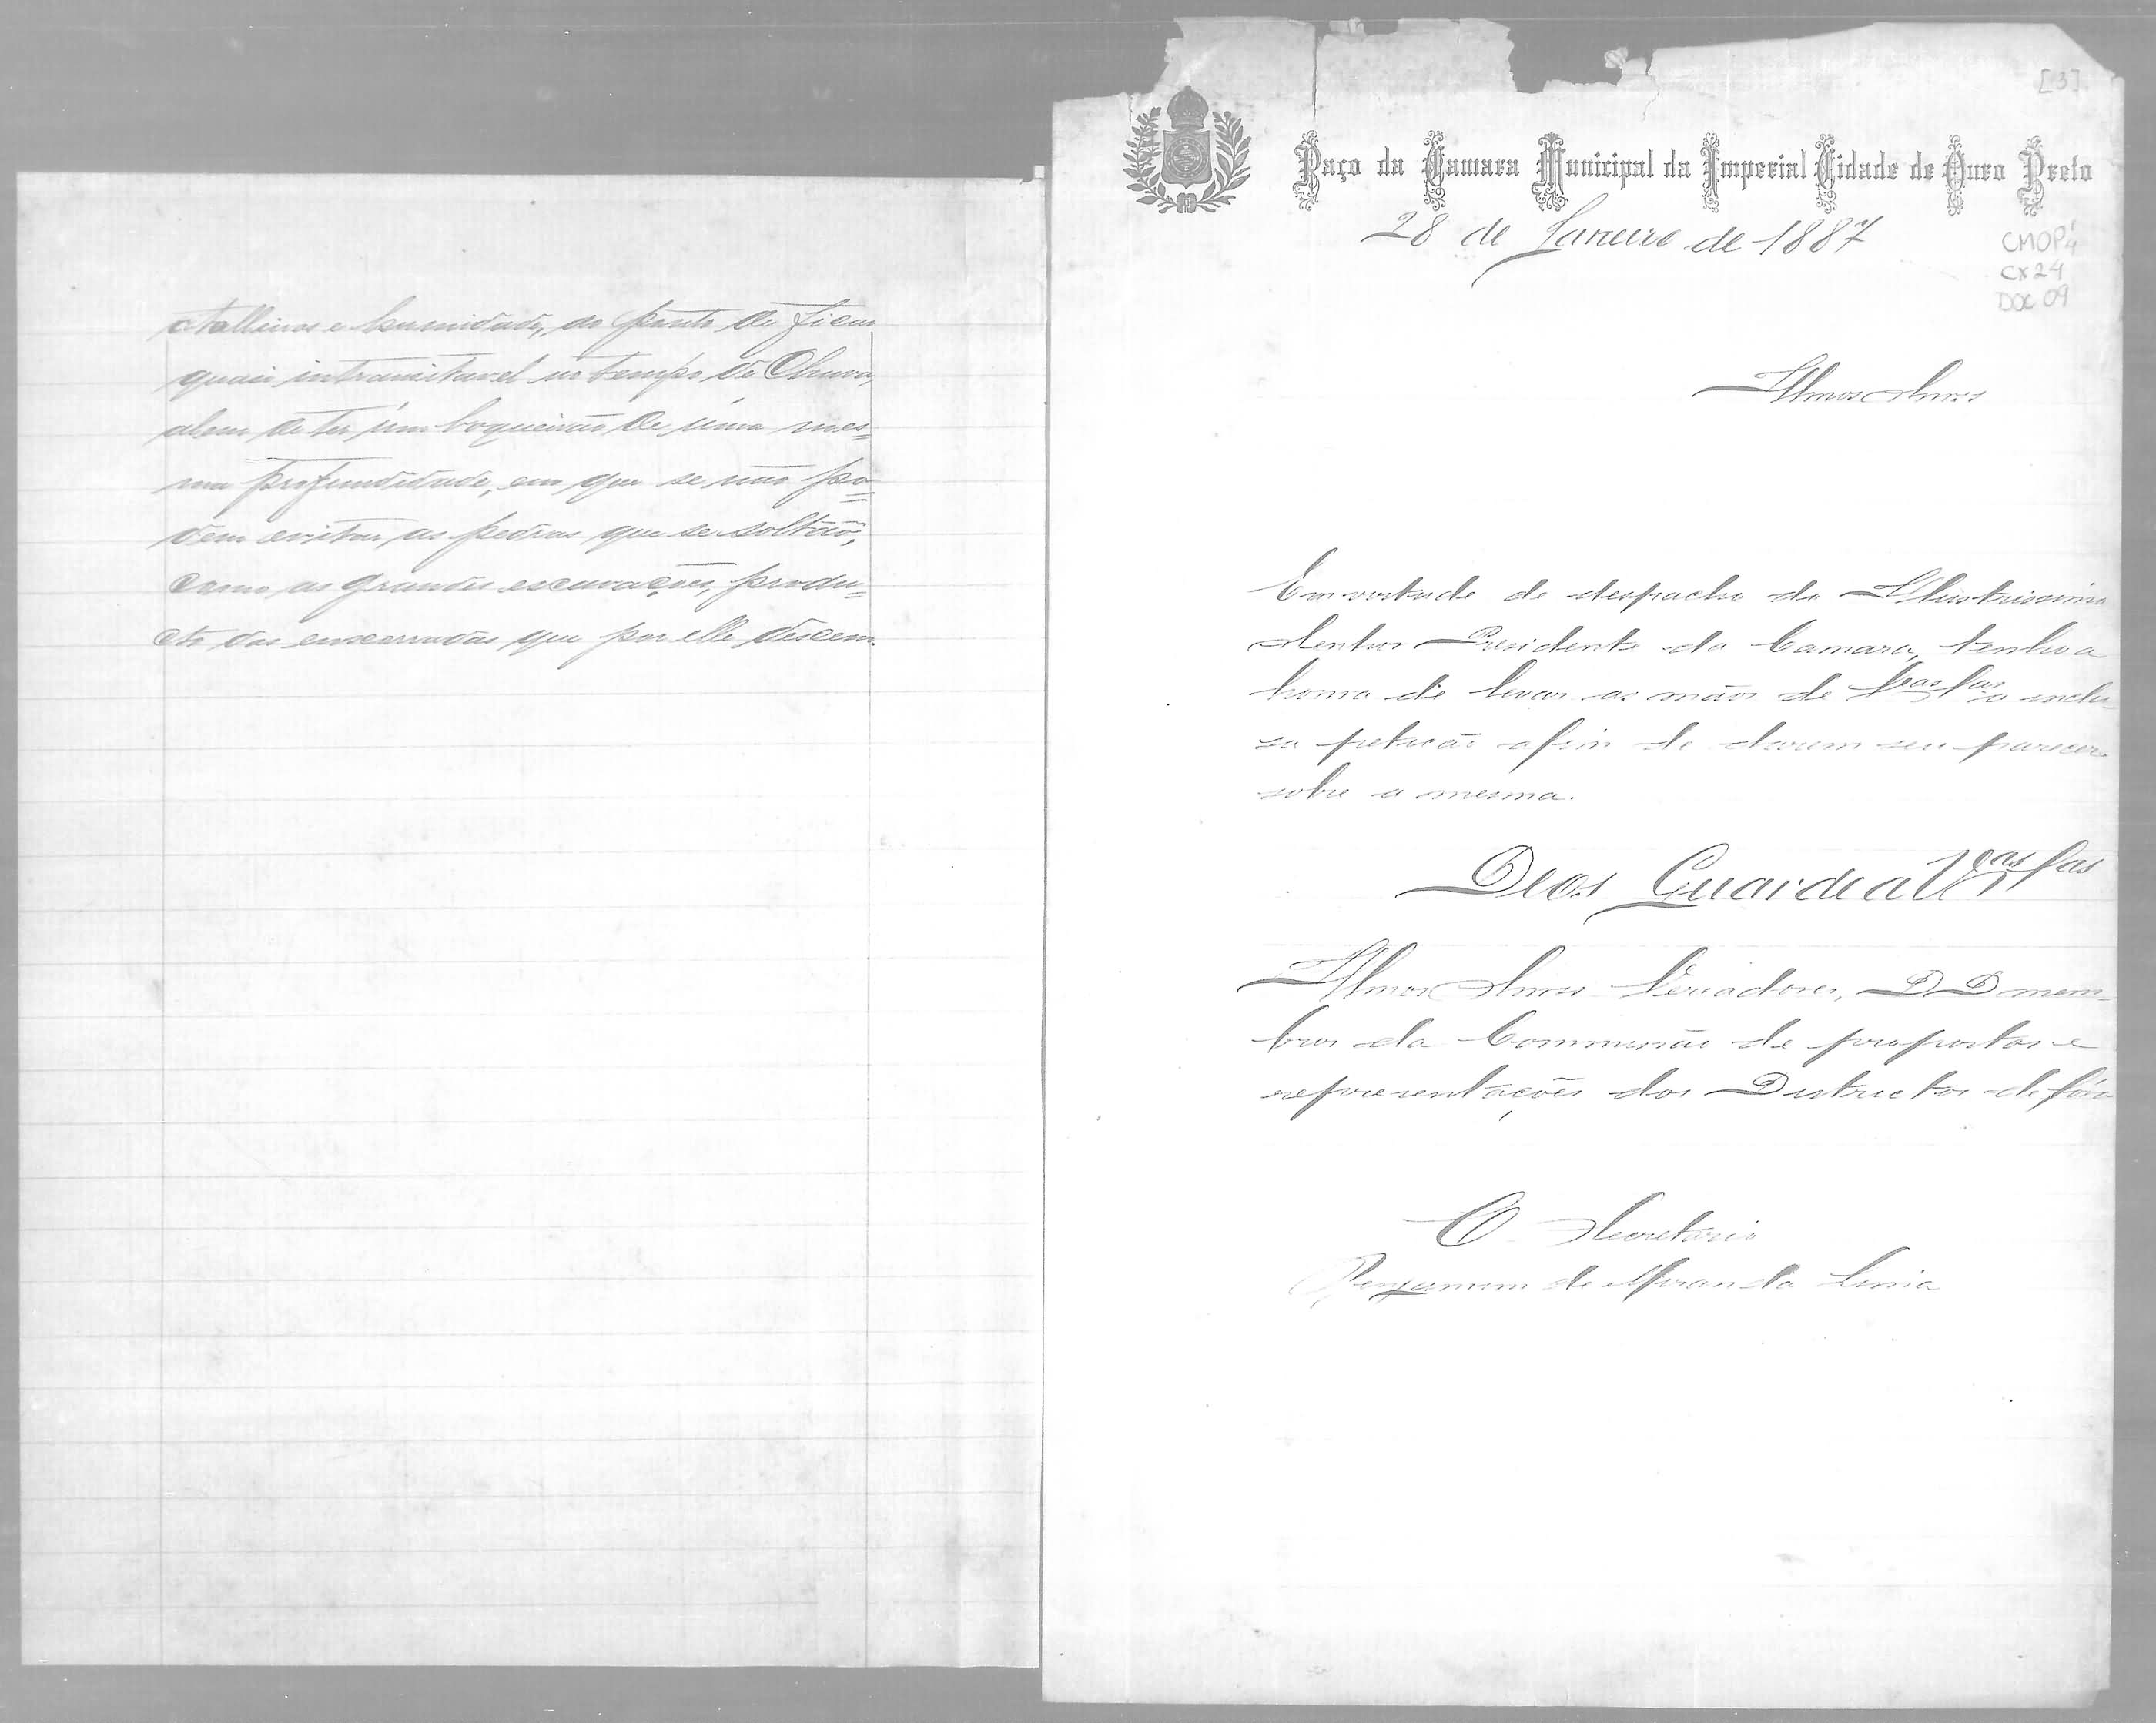 atolleiros e humidade, ao ponto de ficar
quasi intransitavel no tempo de Chuva,
alem de ter um boqueirão de uma mes=
ma profundidade, em que se não po=
dem evitar as pedras que se soltão,
como as grandes escavações, produ=
cto das enxurradas que por elle descem.
[3]
Paço da Camara Municipal da Imperial Cidade de Ouro Preto
28 de Janeiro de 1887
CMOP
CX 24
DOC 09
Illmos Snres
Em virtude de despacho do Illustrissimo
Senhor Presidente da Camara, tenho a
honra de levar as mãos de Vas Sas a inclu-
sa petição afim de darem seu parecer
sobre a mesma.
Deos Guarde a Vas Sas
Illmos Snres Vereadores, DD mem-
bros da Commissão de propostas e
representações dos Districtos de fóra
O Secretario
Benjamim de Miranda Lima